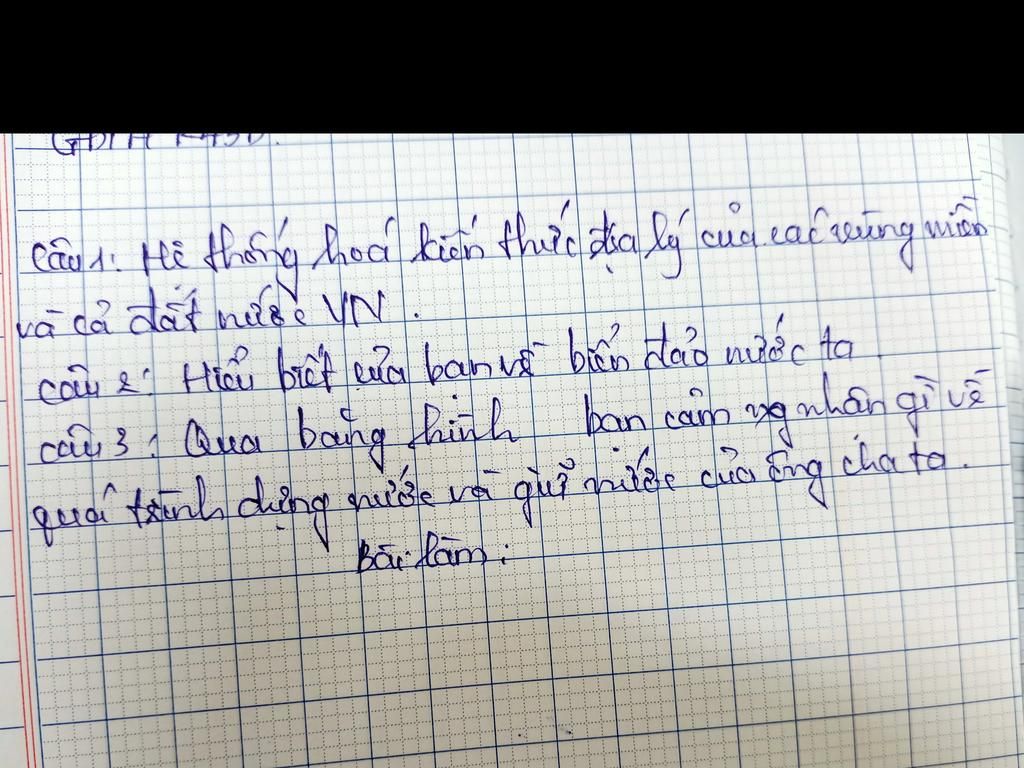 Câu 1: Hệ thống hoá kiến thức địa lý của các vùng miền
và cả đất nước VN.
câu 2: Hiểu biết của bạn về biển đảo nước ta
câu 3: Qua băng hình bạn cảm nhân gì về
quá trình dựng nước và giữ nước của ông cha ta.
Bài làm: